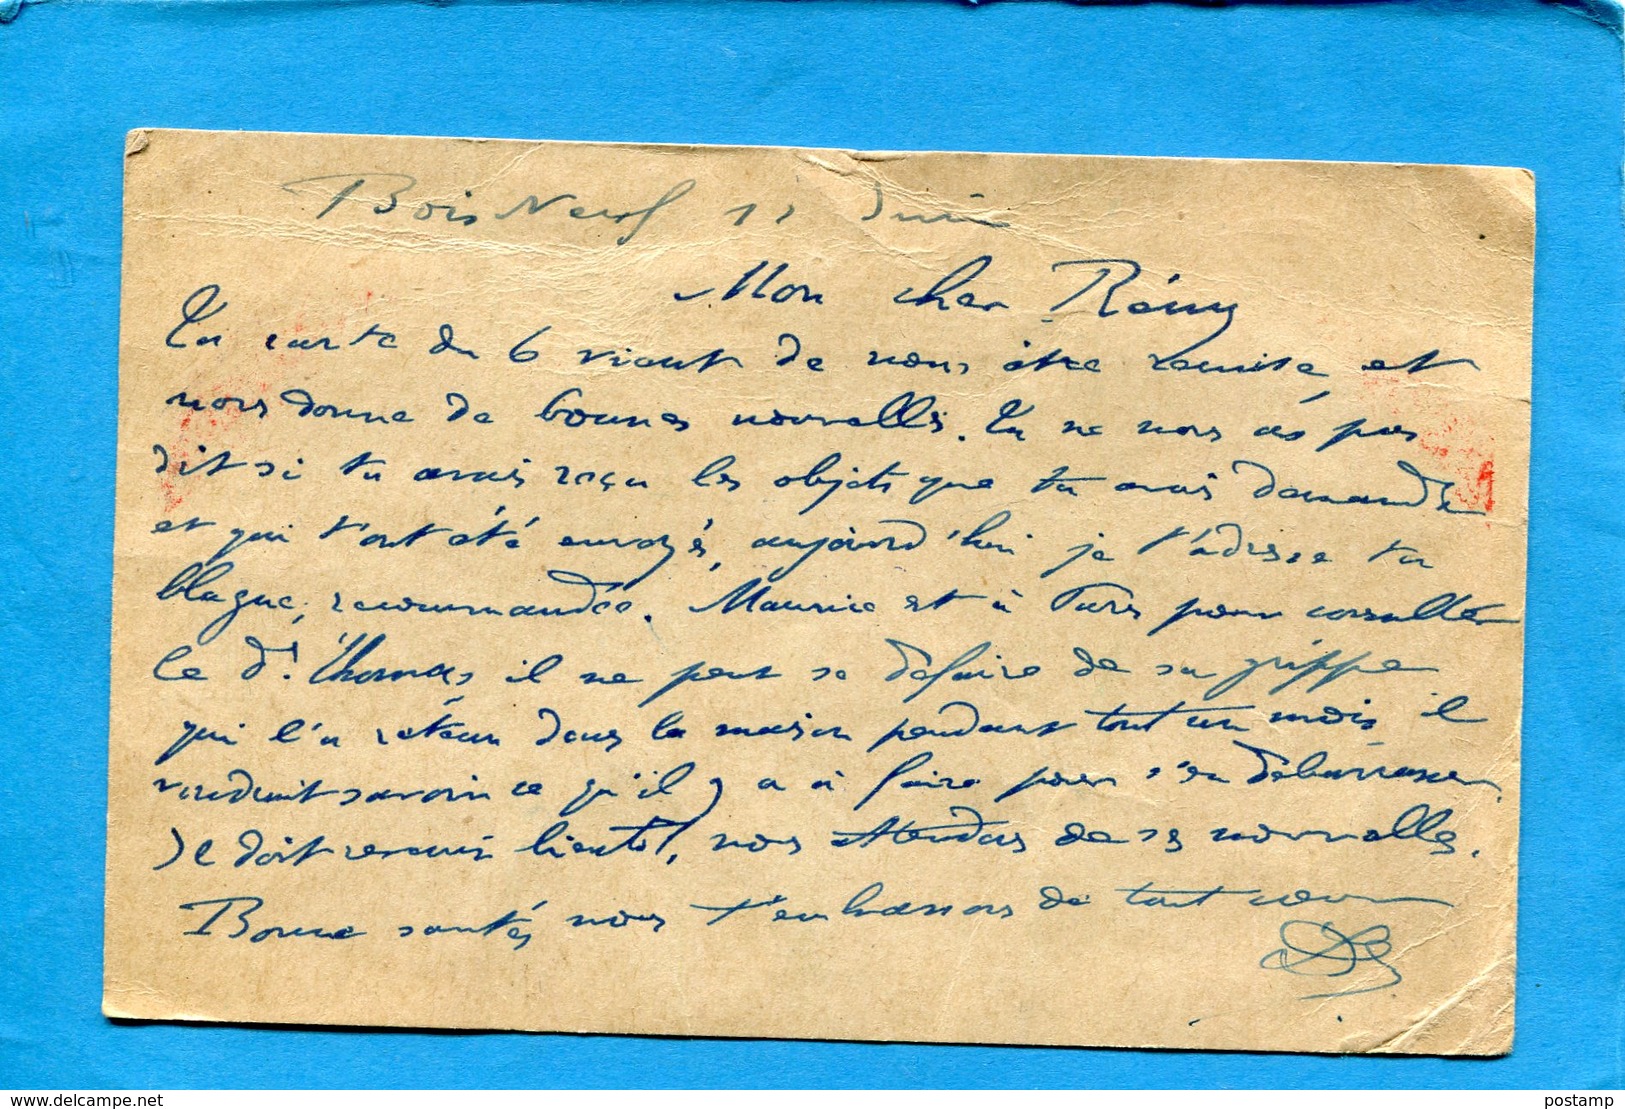 Bois Neuf 11 Juin
Mon cher Rémy
Ta carte du 6 vient de nous être remise, et
nous donne de bonnes nouvelles. Tu ne nous as pas
dit si tu avais reçu les objets que tu avais demandé
et qui t'ont été envoyés, aujourd'hui je t'adresse ta
blague, recommandée. Maurice est à Paris pour consulter
le Dr. Thomas, il ne peut se défaire de sa grippe
qui l'a retenu dans la maison pendant tout un mois il
voudrait savoir ce qu'il y a à faire pour s'en débarrasser.
Il doit revenir bientôt, nous attendons de ses nouvelles.
Bonne santés, nous t'embrassons de tout cœur
www.delcampe.net
postamp